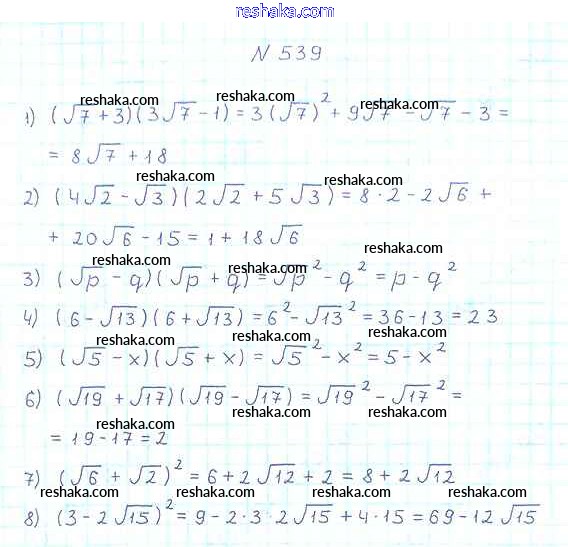 reshaka.com
N 539
reshaka.com reshaka.com reshaka.com
1) (√7 + 3)(3√7 - 1) = 3(√7)² + 9√7 - √7 - 3 =
= 8√7 + 18
reshaka.com reshaka.com
2) (4√2 - √3)(2√2 + 5√3) = 8 · 2 - 2√6 +
+ 20√6 - 15 = 1 + 18√6
reshaka.com reshaka.com
3) (√p - q)(√p + q) = √p² - q² = p - q²
reshaka.com
4) (6 - √13)(6 + √13) = 6² - √13² = 36 - 13 = 23
reshaka.com reshaka.com
5) (√5 - x)(√5 + x) = √5² - x² = 5 - x²
reshaka.com
6) (√19 + √17)(√19 - √17) = √19² - √17² =
reshaka.com reshaka.com
= 19 - 17 = 2
7) (√6 + √2)² = 6 + 2√12 + 2 = 8 + 2√12
reshaka.com reshaka.com reshaka.com
8) (3 - 2√15)² = 9 - 2 · 3 · 2√15 + 4 · 15 = 69 - 12√15